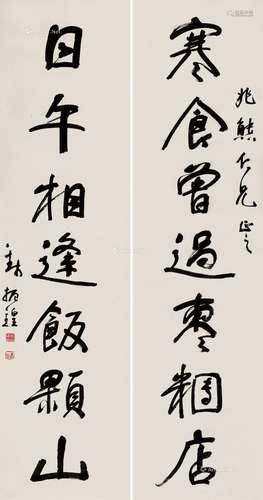 寒食曾過棗糰店
兆熊仁兄正之
日午相逢飯顆山